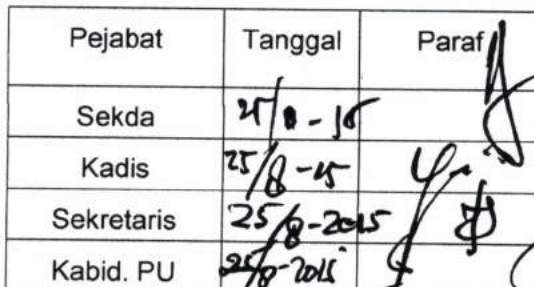 Pejabat Tanggal Paraf
Sekda
Kadis 25/8-15
Sekretaris 25/8-2015
Kabid. PU 25/8-2015